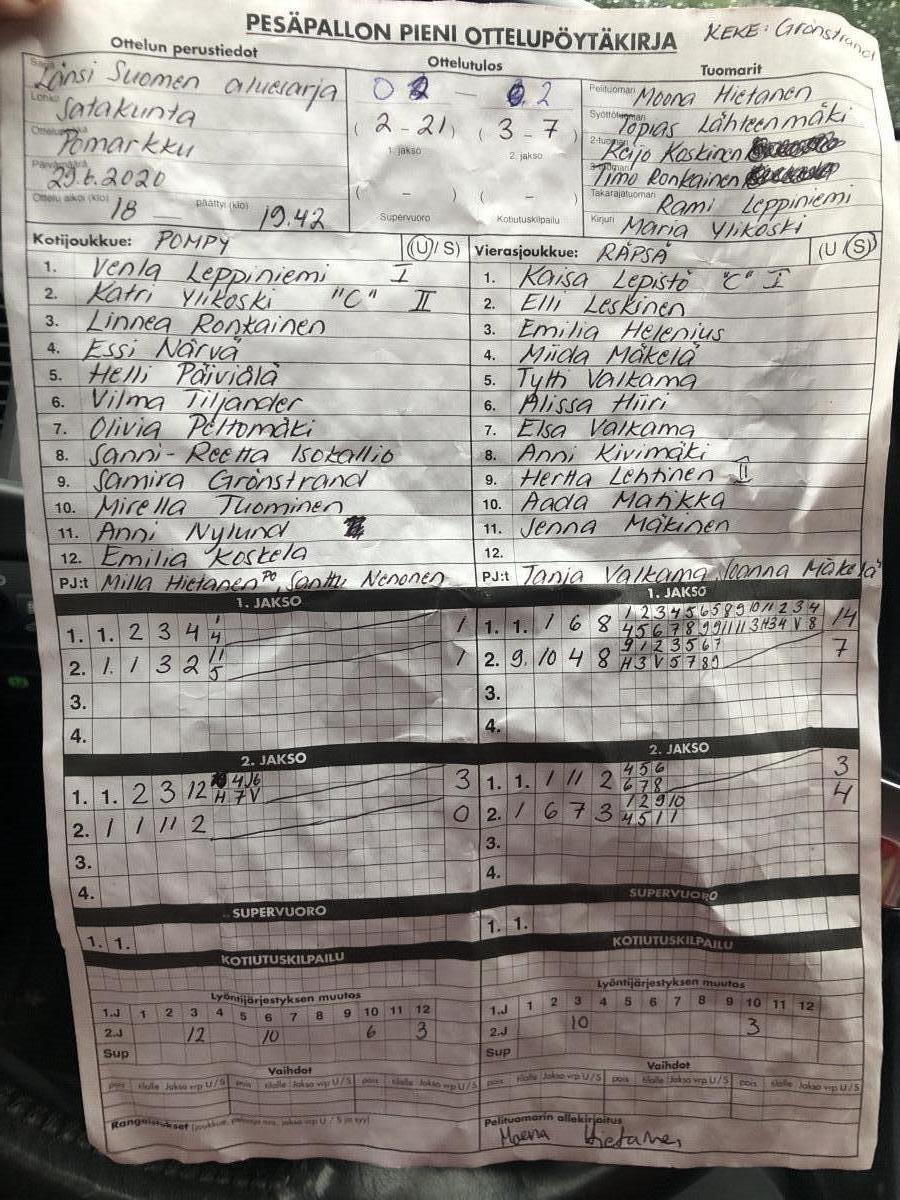 PESÄPALLON PIENI OTTELUPÖYTÄKIRJA
KEKE: Grönstrand
Ottelun perustiedot
Ottelutulos
Tuomarit
Länsi Suomen aluesarja
Satakunta
Pomarkku
29.6.2020
Ottelu alkoi (klo) 18 päättyi (klo) 19.42
0 2 — 0 2
( 2 - 21 ) ( 3 - 7 )
1. jakso 2. jakso
( - ) ( - )
Supervuoro Kotiutuskilpailu
Pelituomari Moona Hietanen
Syöttötuomari Topias Lähteenmäki
2-tuomari Keijo Koskinen
3-tuomari Timo Ronkainen
Takarajatuomari Rami Leppiniemi
Kirjuri Maria Ylikoski
Kotijoukkue: POMPY (U/S)
1. Venla Leppiniemi I
2. Katri Ylikoski "C" II
3. Linnea Ronkainen
4. Essi Närvä
5. Helli Päiviälä
6. Vilma Tiljander
7. Olivia Peltomäki
8. Sanni-Reetta Isokallio
9. Samira Grönstrand
10. Mirella Tuominen
11. Anni Nylund
12. Emilia Koskela
PJ:t Milla Hietanen PO Santtu Nenonen
Vierasjoukkue: RÄPSÄ (U/S)
1. Kaisa Lepistö "C" I
2. Elli Leskinen
3. Emilia Helenius
4. Miida Mäkelä
5. Tytti Valkama
6. Alissa Hiiri
7. Elsa Valkama
8. Anni Kivimäki
9. Hertta Lehtinen II
10. Aada Matikka
11. Jenna Mäkinen
12.
PJ:t Tanja Valkama Joanna Mäkelä
1. JAKSO
1. 1. 2 3 4 1 4 1
2. 1. 1 3 2 11 5 1
3.
4.
2. JAKSO
1. 1. 2 3 12 4 5 6 H 7 V 3
2. 1 1 11 2 0
3.
4.
SUPERVUORO
1. 1.
KOTIUTUSKILPAILU
1. JAKSO
1. 1. 1 6 8 1 2 3 4 5 6 5 8 9 10 11 2 3 4 14
4 5 6 7 8 9 9 11 11 3 H 3 4 V 8
2. 9. 10 4 8 9 1 2 3 5 6 7 7
H 3 V 5 7 8 9
3.
4.
2. JAKSO
1. 1. 1 11 2 4 5 6 3
6 7 8
2. 1 6 7 3 1 2 9 10 4
4 5 1 1
3.
4.
SUPERVUORO
1. 1.
KOTIUTUSKILPAILU
Lyöntijärjestyksen muutos
1.J 1 2 3 4 5 6 7 8 9 10 11 12
2.J 12 10 6 3
Sup
Vaihdot
pois tilalle Jakso vrp U/S pois tilalle Jakso vrp U/S pois tilalle Jakso vrp U/S
Rangaistukset
Lyöntijärjestyksen muutos
1.J 1 2 3 4 5 6 7 8 9 10 11 12
2.J 10 3
Sup
Vaihdot
pois tilalle Jakso vrp U/S pois tilalle Jakso vrp U/S pois tilalle Jakso vrp U/S
Pelituomarin allekirjoitus
Moona Hietanen